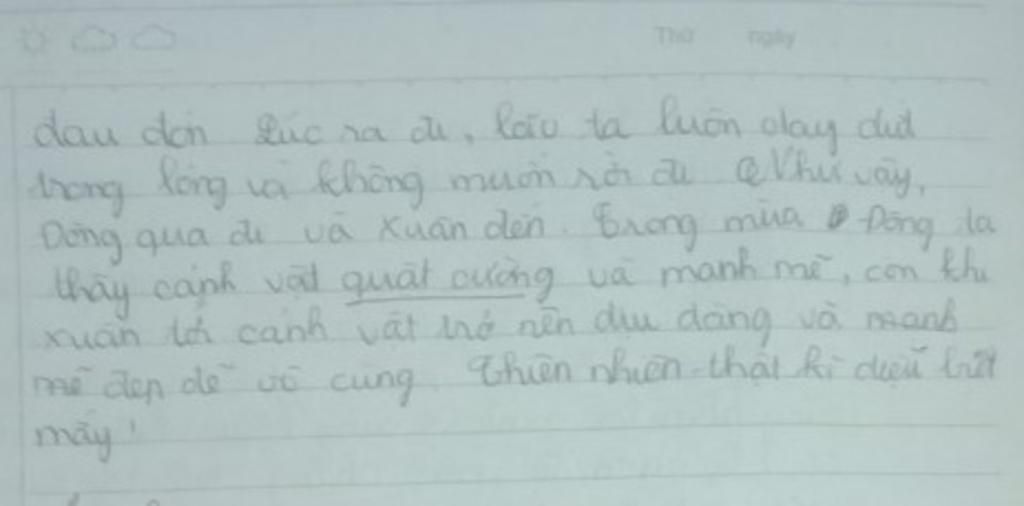 Thứ ngày
đau đớn lúc ra đi, lão ta luôn day dứt
trong lòng và không muốn rời đi. Như vậy,
Đông qua đi và Xuân đến. Trong mùa Đông ta
thấy cảnh vật quật cường và mạnh mẽ, còn khi
xuân tới cảnh vật trở nên dịu dàng và mạnh
mẽ đẹp đẽ vô cùng. Thiên nhiên thật kì diệu biết
mấy!